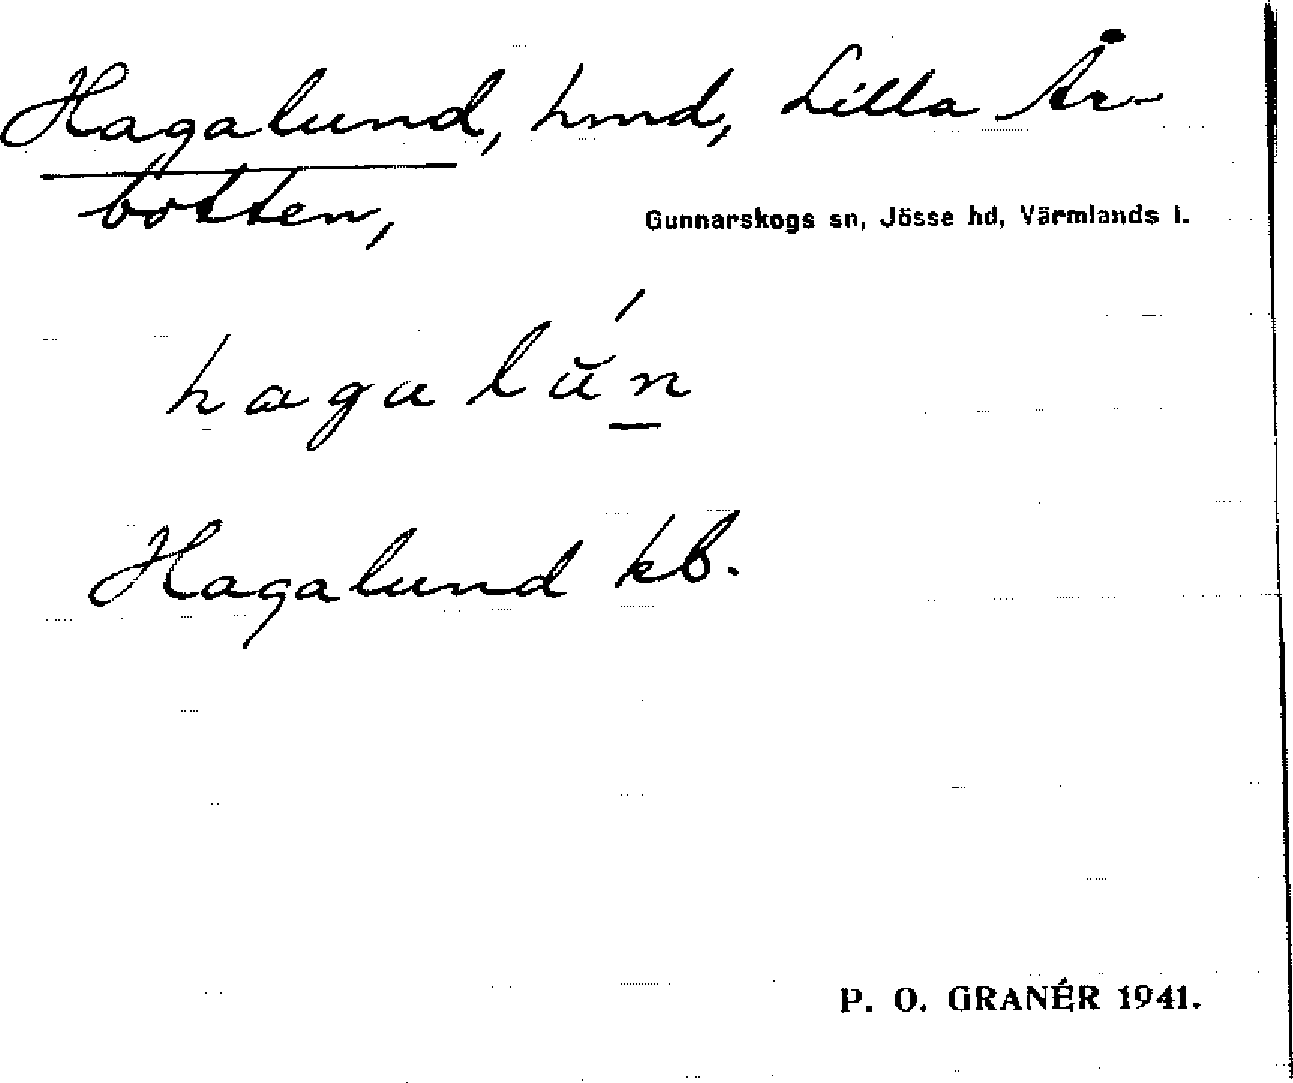 Hagalund, hmd, Lilla År-
botten,
Gunnarskogs sn, Jösse hd, Värmlands l.
hagalŭ́n
Hagalund kb.
P. O. GRANÉR 1941.